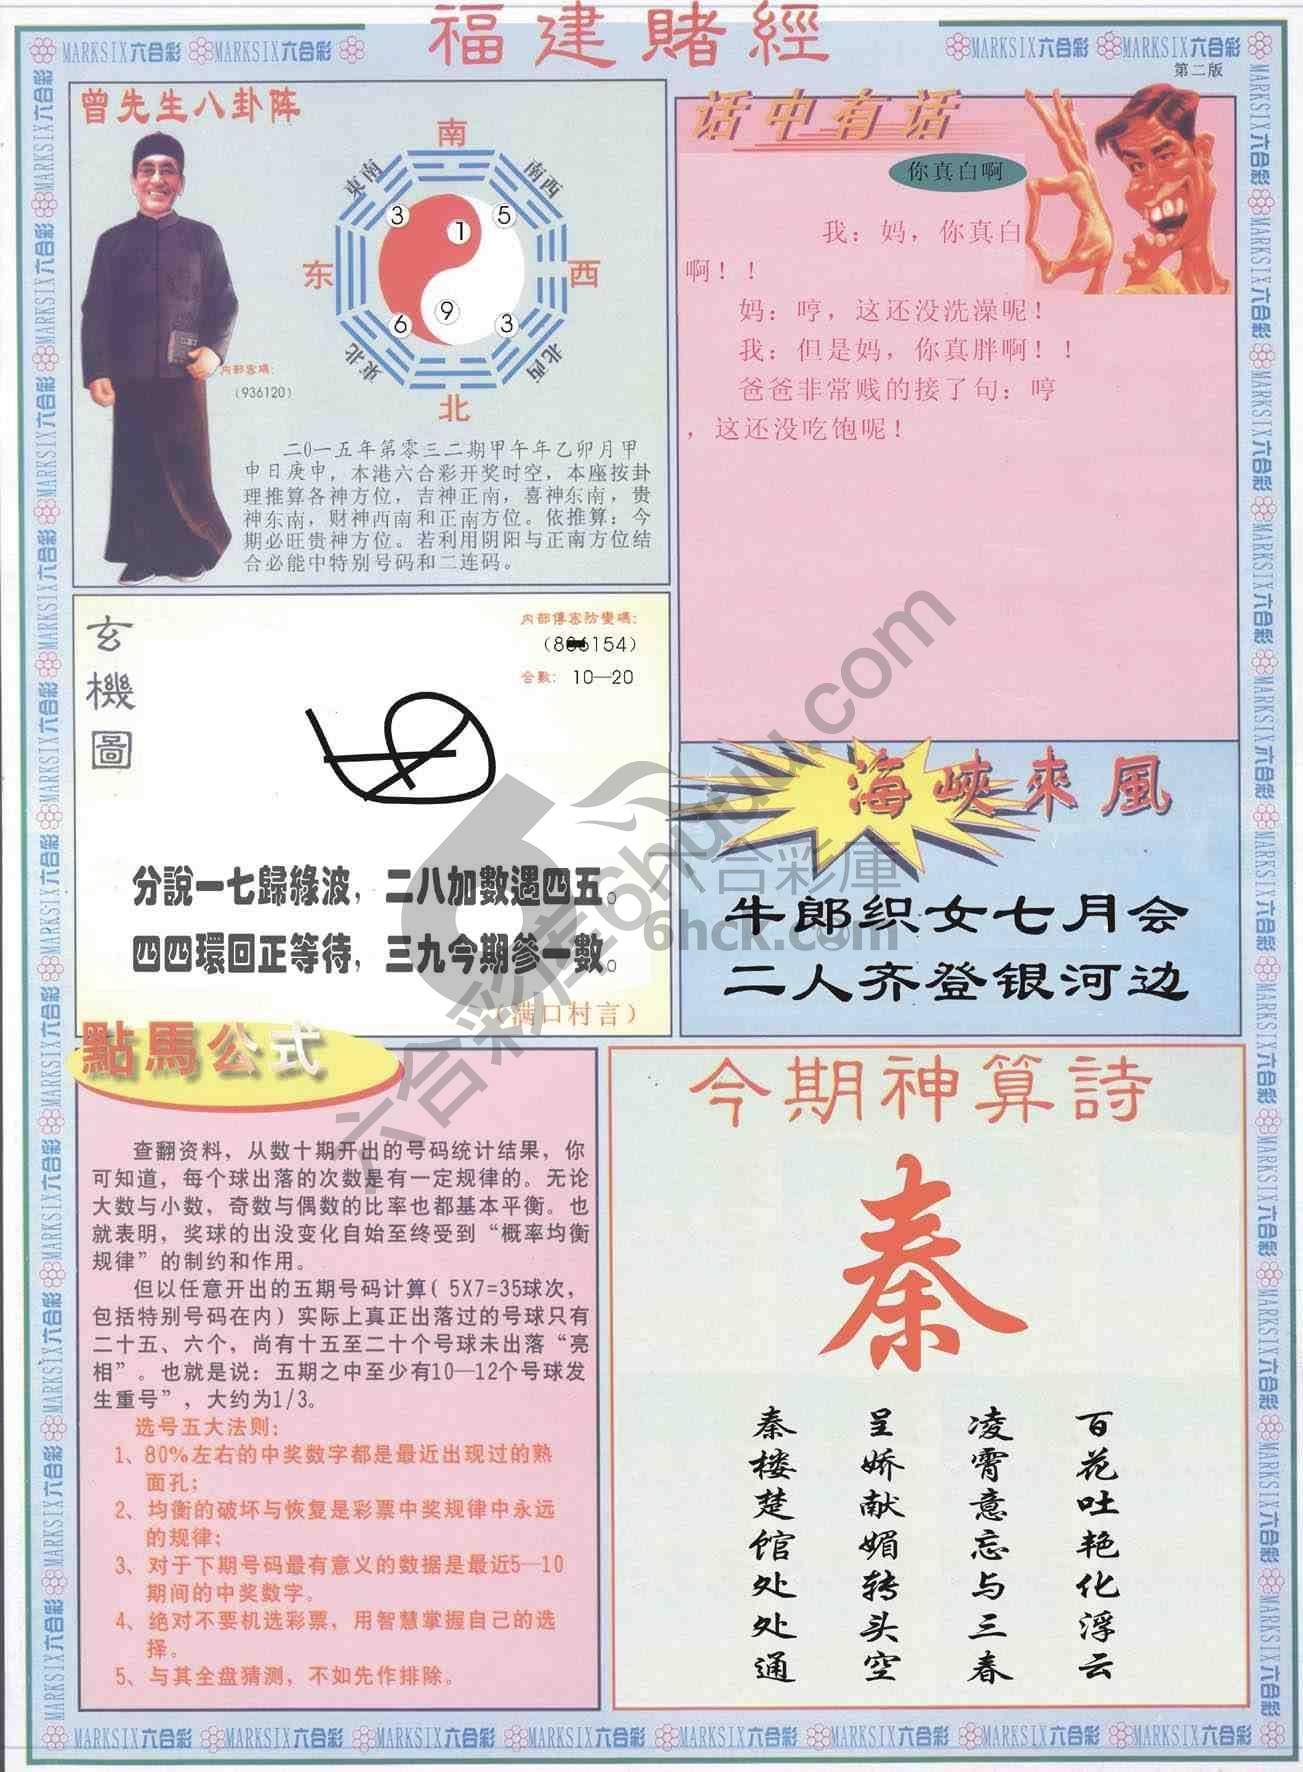 福建賭經
MARKSIX六合彩 MARKSIX六合彩
MARKSIX六合彩 MARKSIX六合彩
第二版
曾先生八卦阵
南
東南
南西
3
1
5
东
西
6
9
3
東北
北西
北
内部密碼:
(936120)
二0一五年第零三二期甲午年乙卯月甲
申日庚申，本港六合彩开奖时空，本座按卦
理推算各神方位，吉神正南，喜神东南，贵
神东南，财神西南和正南方位。依推算：今
期必旺贵神方位。若利用阴阳与正南方位结
合必能中特别号码和二连码。
话中有话
你真白啊
我：妈，你真白
啊！！
妈：哼，这还没洗澡呢！
我：但是妈，你真胖啊！！
爸爸非常贱的接了句：哼
，这还没吃饱呢！
玄機圖
内部傳密防變碼:
合數: 10—20
分說一七歸綠波，二八加數遇四五。
四四環回正等待，三九今期參一數。
（满口村言）
海峽來風
牛郎织女七月会
二人齐登银河边
六合彩庫
6hck.com
六合彩库6huu.com
點馬公式
查翻资料，从数十期开出的号码统计结果，你
可知道，每个球出落的次数是有一定规律的。无论
大数与小数，奇数与偶数的比率也都基本平衡。也
就表明，奖球的出没变化自始至终受到“概率均衡
规律”的制约和作用。
但以任意开出的五期号码计算( 5X7=35球次，
包括特别号码在内）实际上真正出落过的号球只有
二十五、六个，尚有十五至二十个号球未出落“亮
相”。也就是说：五期之中至少有10—12个号球发
生重号”，大约为1/3。
选号五大法则：
1、80%左右的中奖数字都是最近出现过的熟
面孔；
2、均衡的破坏与恢复是彩票中奖规律中永远
的规律；
3、对于下期号码最有意义的数据是最近5—10
期间的中奖数字。
4、绝对不要机选彩票，用智慧掌握自己的选
择。
5、与其全盘猜测，不如先作排除。
今期神算詩
秦
百花吐艳化浮云
凌霄意忘与三春
呈娇献媚转头空
秦楼楚馆处处通
MARKSIX六合彩 MARKSIX六合彩 MARKSIX六合彩 MARKSIX六合彩 MARKSIX六合彩 MARKSIX六合彩 MARKSIX六合彩 MARKSIX六合彩